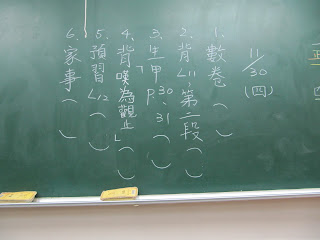 11/30(四)
1. 數卷( )
2. 背L11第二段( )
3. 生甲P30、31( )
4. 背「嘆為觀止」( )
5. 預習L12( )
6. 家事( )